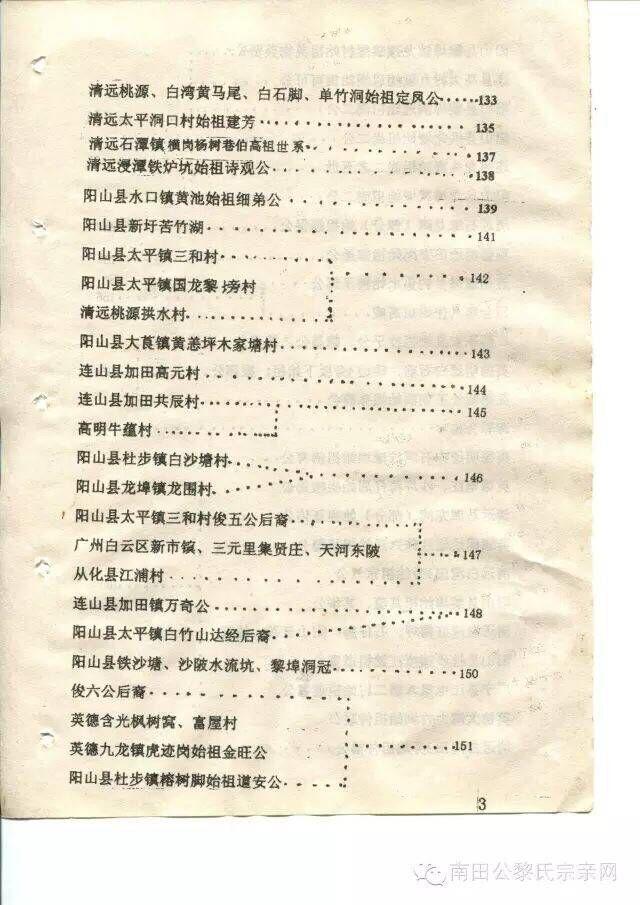 清远桃源、白湾黄马尾、白石脚、单竹洞始祖定凤公······133
清远太平洞口村始祖建芳······135
清远石潭镇横岗杨树巷伯高祖世系······137
清远浸潭铁炉坑始祖诗观公······138
阳山县水口镇黄池始祖细弟公······139
阳山县新圩苦竹湖······141
阳山县太平镇三和村
阳山县太平镇国龙黎旁村······142
清远桃源拱水村
阳山县大莨镇黄恙坪木家塘村······143
连山县加田高元村······144
连山县加田共辰村······145
高明牛蕴村
阳山县杜步镇白沙塘村
阳山县龙埠镇龙围村······146
阳山县太平镇三和村俊五公后裔
广州白云区新市镇、三元里集贤庄、天河东陂······147
从化县江浦村
连山县加田镇万奇公······148
阳山县太平镇白竹山达经后裔
阳山县铁沙塘、沙陂水流坑、黎埠洞冠······150
俊六公后裔
英德含光枫树窝、富屋村
英德九龙镇虎迹岗始祖金旺公······151
阳山县杜步镇榕树脚始祖道安公
3
南田公黎氏宗亲网